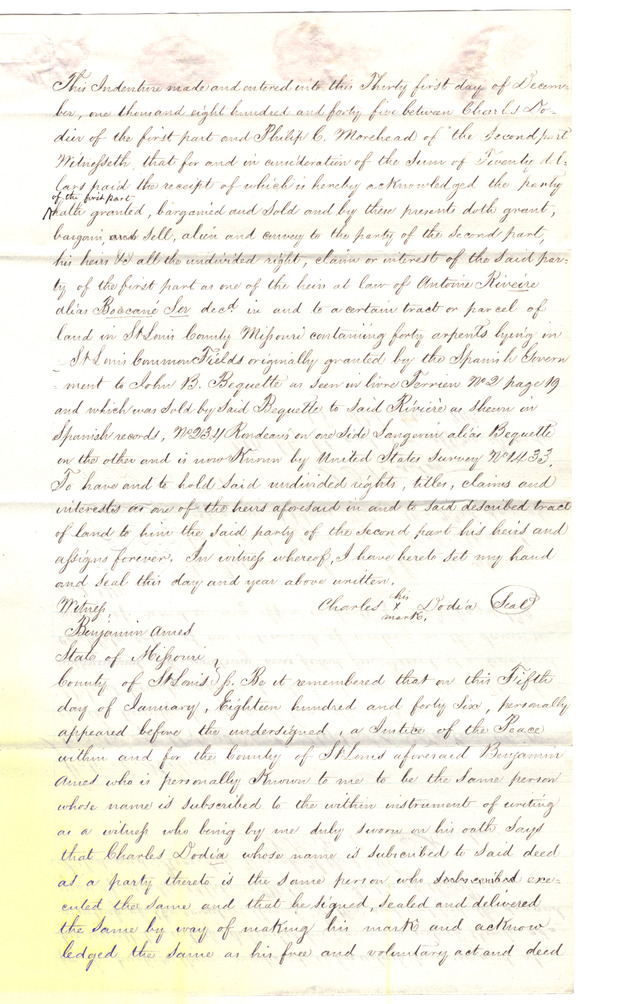 This Indenture made and entered into this Thirty first day of Decem-
ber, one thousand eight hundred and forty five between Charles Do-
dier of the first part and Philip C. Morehead of the second part
Witnesseth, that for and in consideration of the Sum of Twenty dol-
lars paid the receipt of which is hereby acknowledged the party
of the first part
hath granted, bargained and Sold and by these presents doth grant,
bargain and sell, alien and convey to the party of the second part,
his heirs &c all the undivided right, claim or interest of the said par-
ty of the first part as one of the heirs at law of Antoine Riveire
alias Baccané Ser decd. in and to a certain tract or parcel of
land in St Louis County Missouri containing forty arpents lying in
St Louis Common Fields originally granted by the Spanish Govern
-ment to John B. Bequette as seen in livre Terrien No 2 page 19
and which was sold by said Bequette to said Rivière as shewn in
Spanish records, No 234 Rondeau's on one side Langevin alias Bequette
on the other and is now Known by United States Survey No 1433,
To have and to hold said undivided rights, titles, claims and
interests as one of the heirs aforesaid in and to said described tract
of land to him the said party of the second part his heirs and
assigns forever. In witness whereof, I have hereto set my hand
and seal this day and year above written.
Witness Charles his x mark. Dodia Seal
Benjamin Ames
State of Missouri
County of St Louis } ss. Be it remembered that on this Fifth
day of January, Eighteen hundred and forty Six, personally
appeared before the undersigned, a Justice of the Peace
within and for the County of St Louis aforesaid Benjamin
Ames who is personally Known to me to be the same person
whose name is subscribed to the within instrument of writing
as a witness who being by me duly sworn on his oath says
that Charles Dodia whose name is subscribed to said deed
as a party thereto is the same person who subscribed exe-
cuted the same and that he signed, sealed and delivered
the same by way of making his mark and acknow
ledged the same as his free and voluntary act and deed